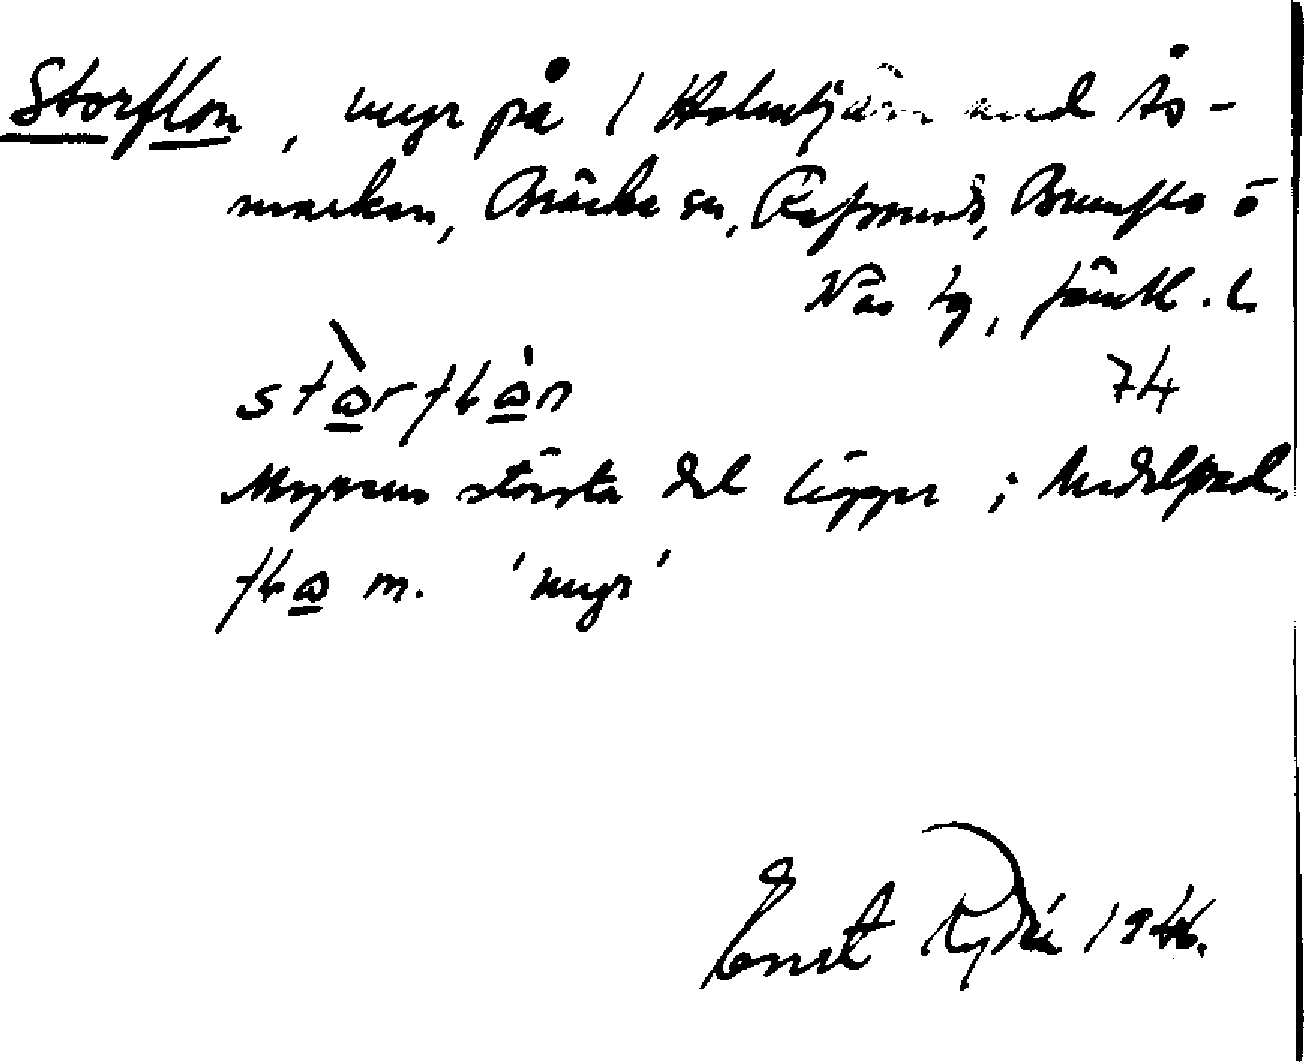 Storflon, myr på 1 Holmtjärn med Ås-
marken, Bräcke sn, Refsunds, Brunflo o
Näs tg, Jämtl. l.
74
Myrens största del ligger i Medelpad.
m. 'myr'
Ernst Rydén 1944.